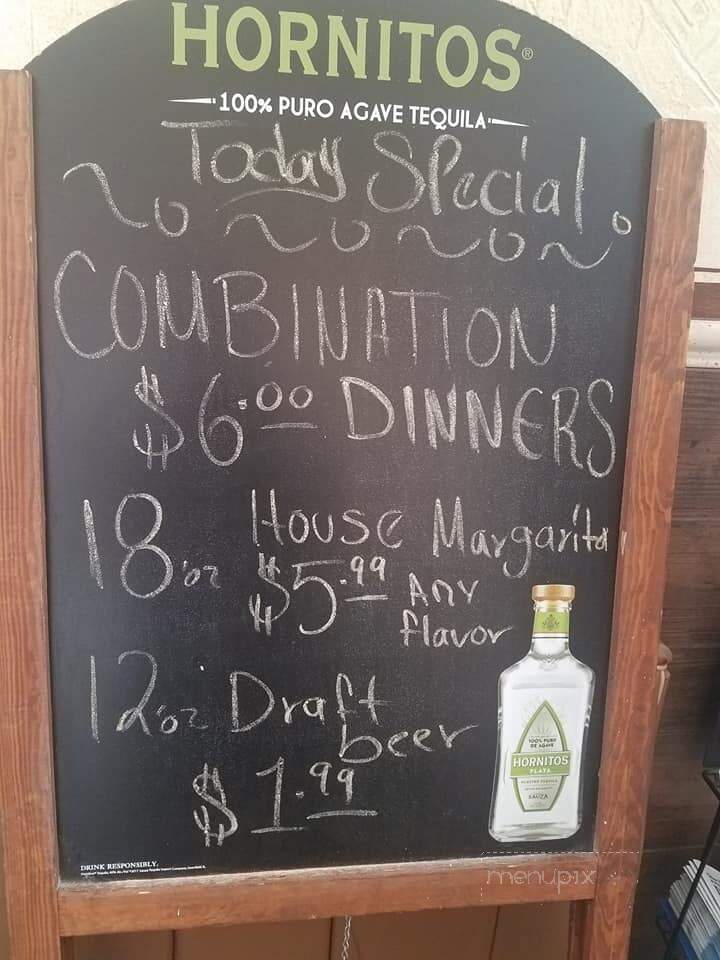 HORNITOS®
100% PURO AGAVE TEQUILA
Today Special
COMBINATION
$6.00 DINNERS
18.oz House Margarita
$5.99 Any
flavor
12.oz Draft
beer
$1.99
100% PURO
DE AGAVE
HORNITOS
PLATA
SAUZA
DRINK RESPONSIBLY.
menupix